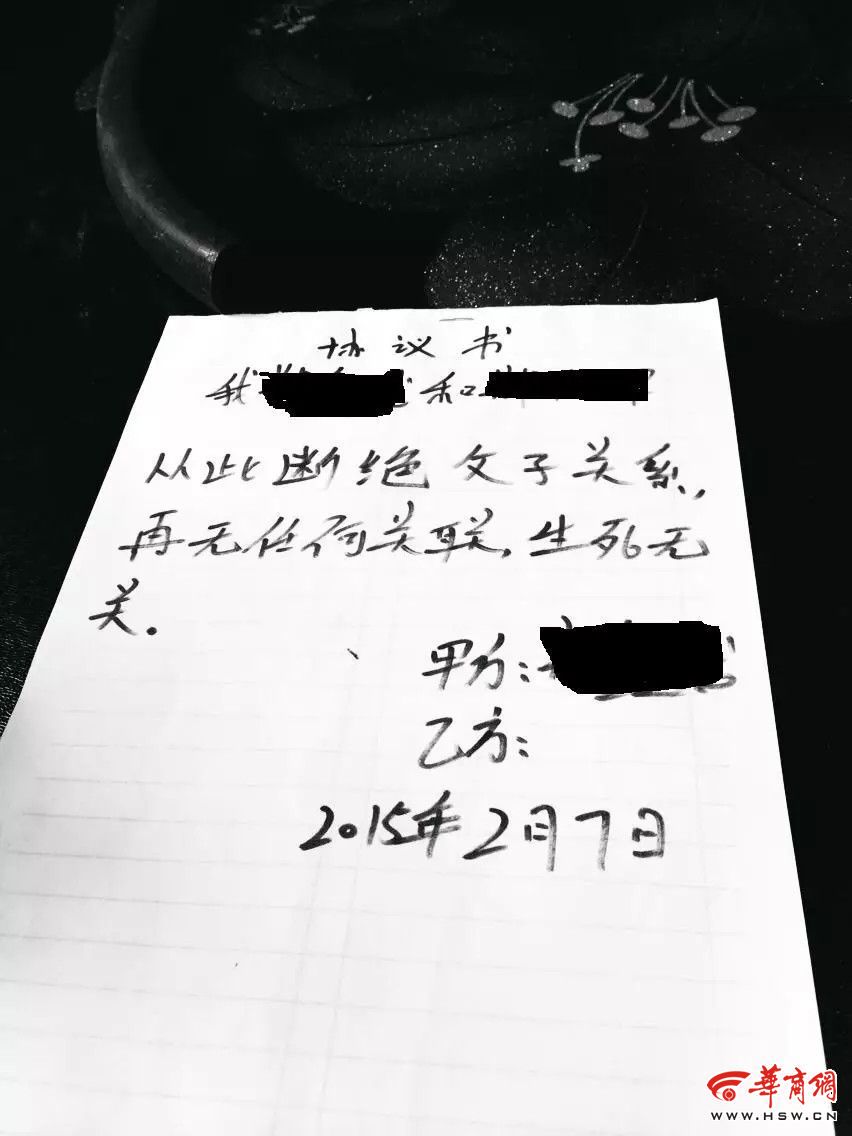 协议书
我 和
从此断绝父子关系,
再无任何关联,生死无
关。
甲方:
乙方:
2015年2月7日
華商網
WWW.HSW.CN